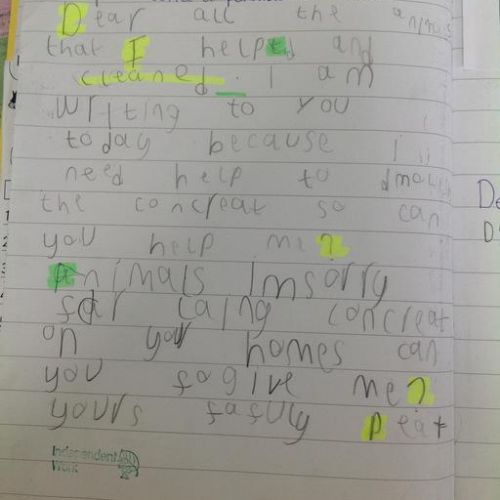 Dear all the
that I helpted and
cleaned. I am
writing to you
today because I
need help to
the concreat so can
you help me?
Animals Imsorry
for caing concreat
on your homes can
you fogive me?
yours fafuly peat
Independent
Work